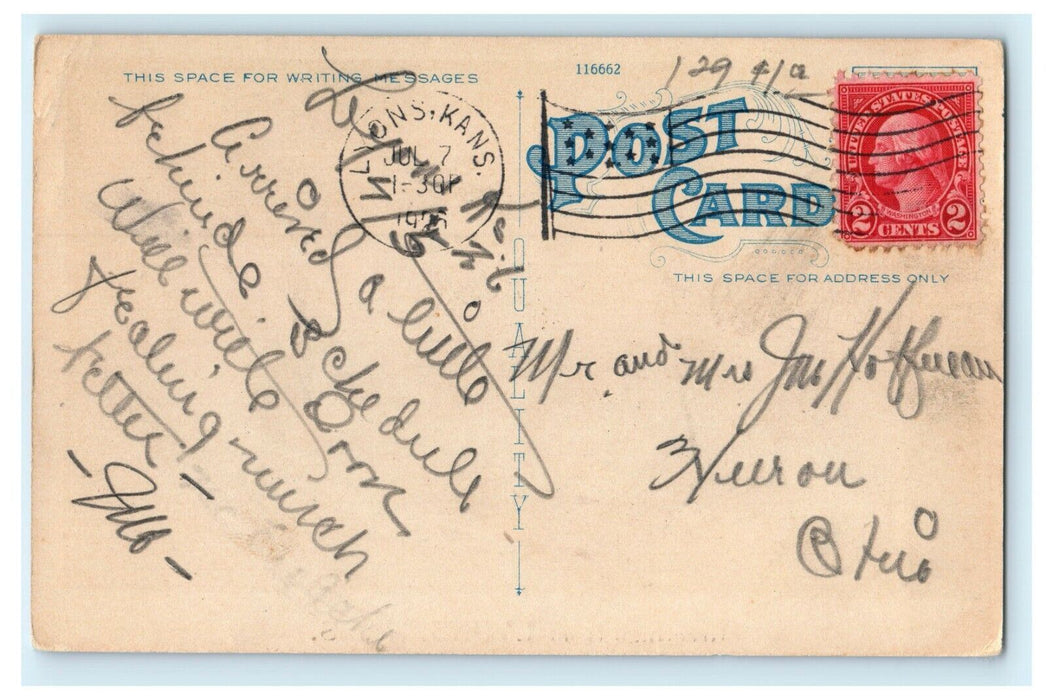 THIS SPACE FOR WRITING MESSAGES
116662
129
POST
CARD
THIS SPACE FOR ADDRESS ONLY
QUALITY
LYONS, KANS.
JUL 7
1-30P
UNITED STATES POSTAGE
WASHINGTON
2 CENTS 2
Arrived a little
behind schedule
Will write soon
feeling much
better
Mr and Mrs Jno Hoffman
Huron
Ohio